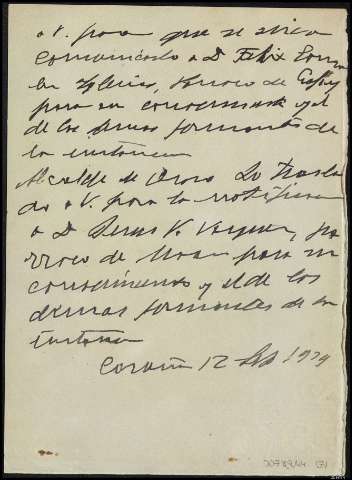 a V. para que se sirva
comunicarlo a D. Felix
Iglesias, Parroco de
para su conocimiento y el
de los demas firmantes de
la instancia
Alcalde de Oroso Lo trasla
do a V. para lo notifique
a D. Jesus V. Vazquez, pa
rroco de para su
conocimiento y el de los
demas firmantes de su
instancia
Coruña 12 1939